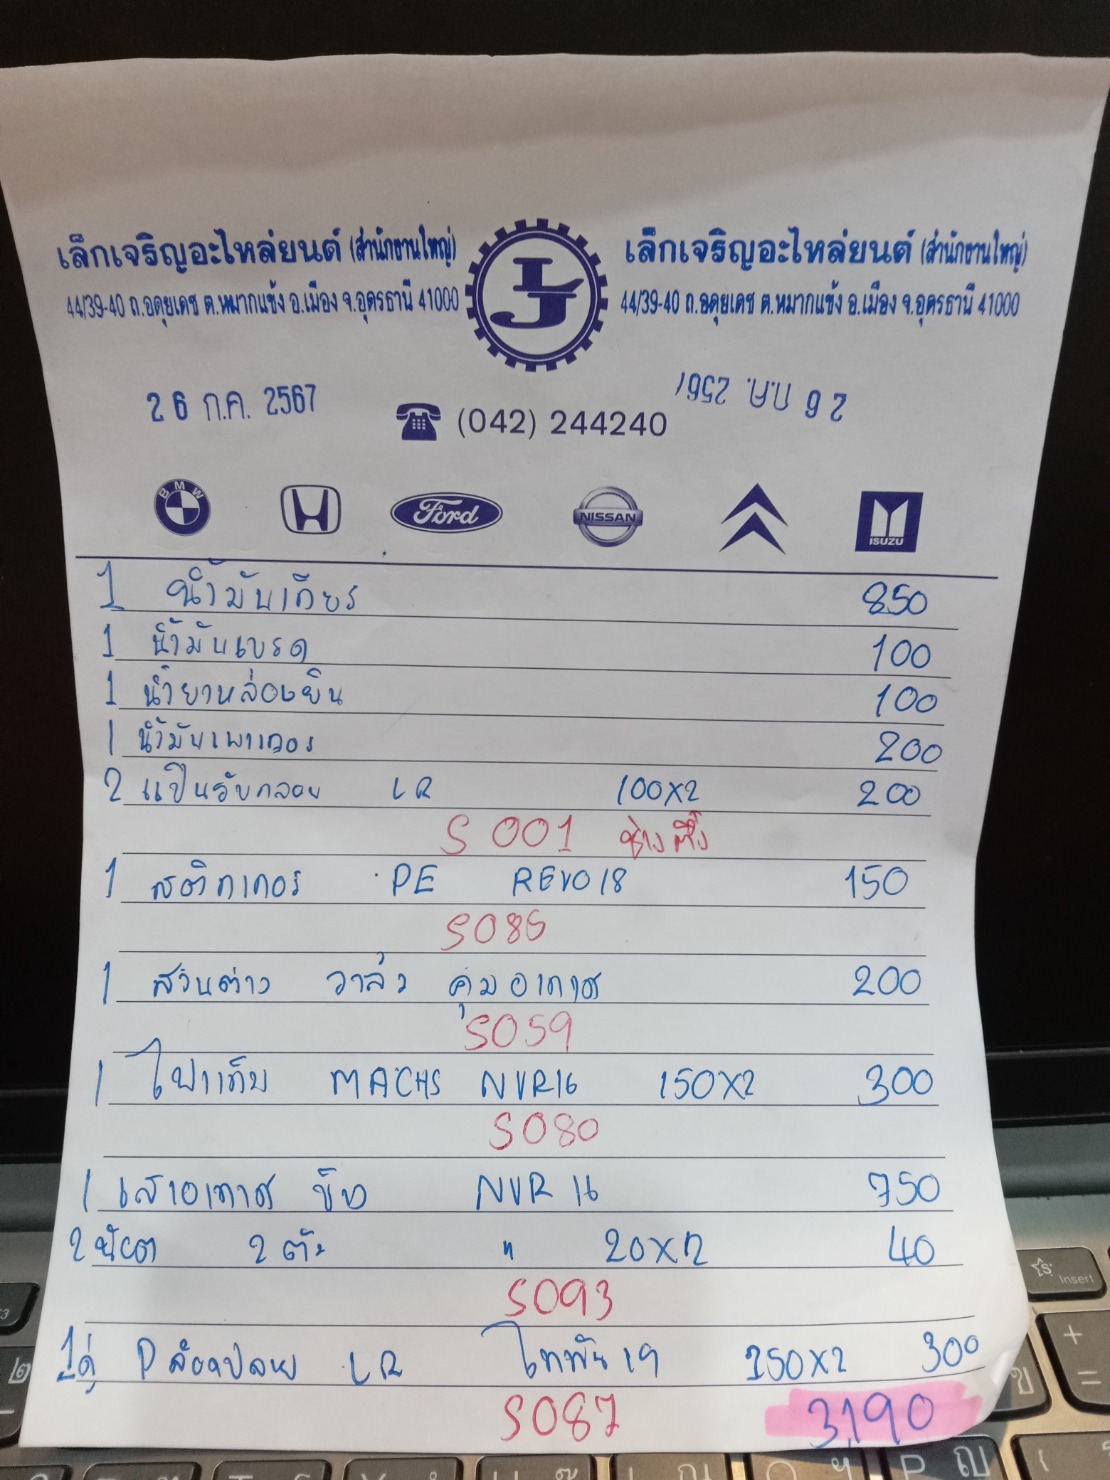 เล็กเจริญอะไหล่ยนต์ (สำนักงานใหญ่)
44/39-40 ถ.อดุยเดช ต.หมากแข้ง อ.เมือง จ.อุดรธานี 41000
LJ
เล็กเจริญอะไหล่ยนต์ (สำนักงานใหญ่)
44/39-40 ถ.อดุยเดช ต.หมากแข้ง อ.เมือง จ.อุดรธานี 41000
26 ก.ค. 2567
26 ก.ค. 2567
(042) 244240
BMW
Ford
NISSAN
ISUZU
1 น้ำมันเกียร 850
1 น้ำมันเบรด 100
1 น้ำยาหล่อเย็น 100
1 น้ำมันเพาเวอร 200
2 แป้นรับกลอน LR 100X2 200
S001 ช่างตึ๋ง
1 สติกเกอร PE REVO18 150
S085
1 ส่วนต่าง วาล์ว คุมอากาศ 200
S059
1 ไฟแก้ม MACHS NVR16 150X2 300
S080
1 เสาอากาศ ขึง NVR16 750
2 น๊อต 2 ตัว " 20X2 40
S093
1คู่ P ล้อคปลาย LR ไททัน19 150X2 300
S087 3,190
Insert